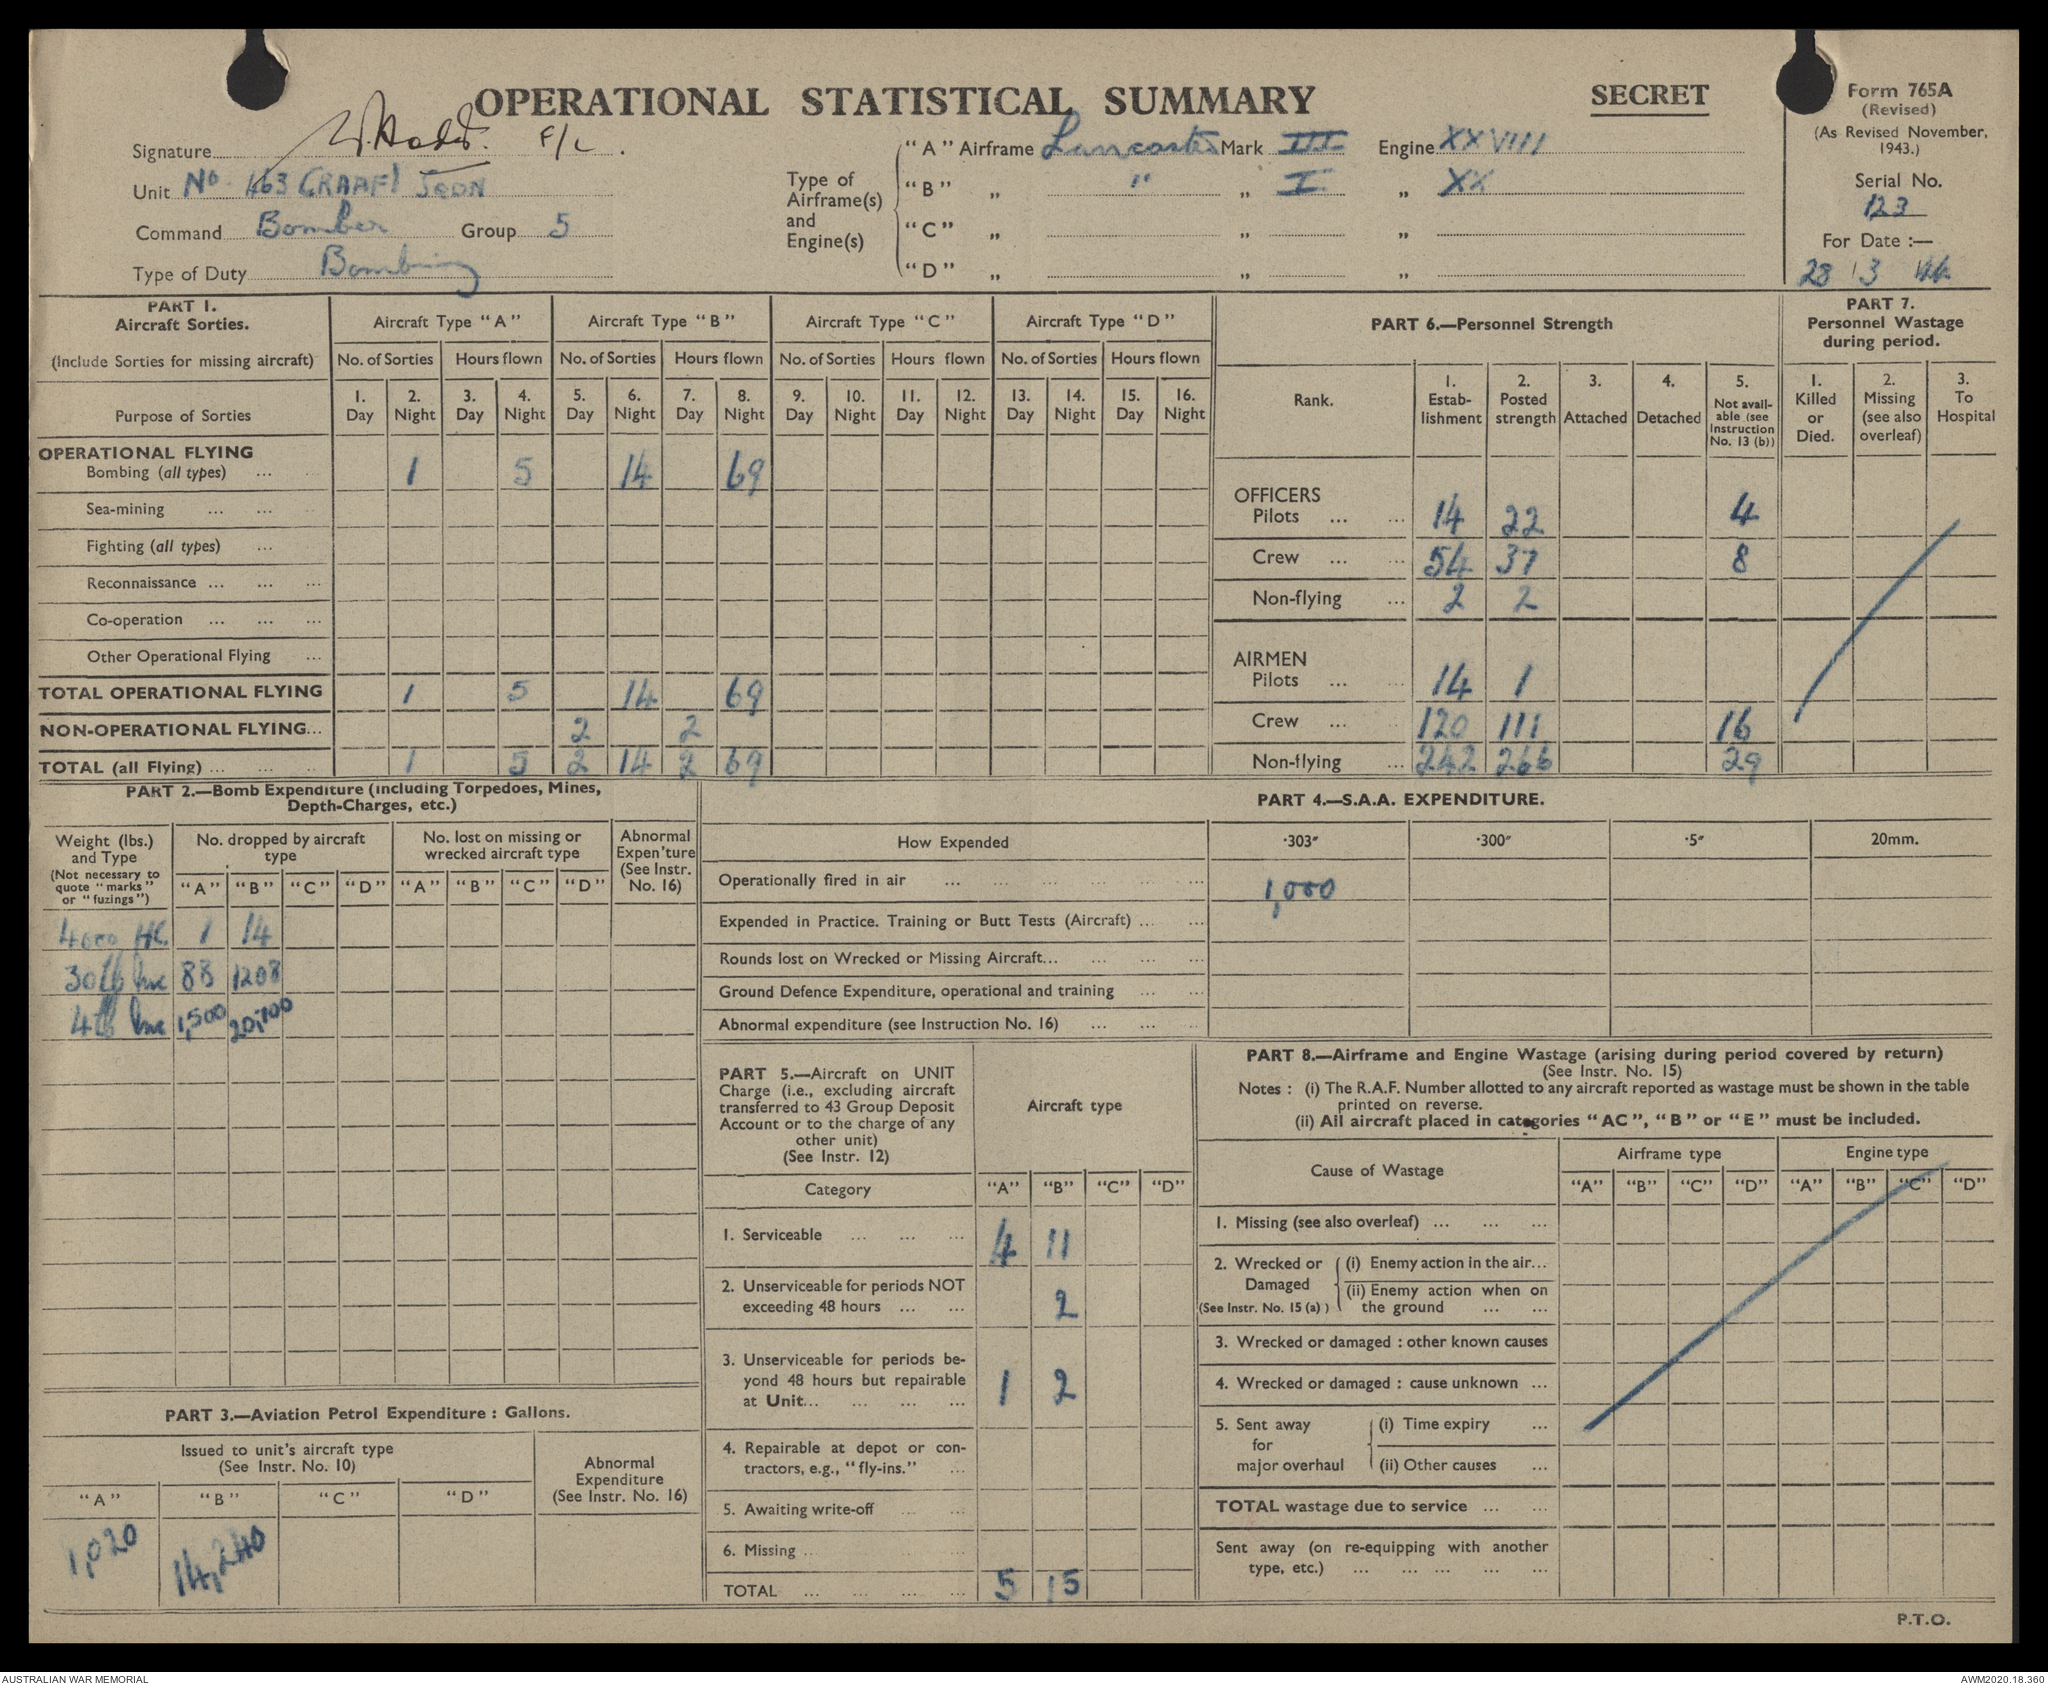 OPERATIONAL STATISTICAL SUMMARY
SECRET
Form 765A
(Revised)
(As Revised November, 1943.)
Serial No.
123
For Date :—
28 3 44
Signature F/L.
Unit No 463 (RAAF) SQDN
Command Bomber Group 5
Type of Duty Bombing
Type of Airframe(s) and Engine(s)
"A" Airframe Lancaster Mark III Engine XXVIII
"B" „ " „ I „ XX
"C" „ „ „
"D" „ „ „
PART 1.
Aircraft Sorties.
(Include Sorties for missing aircraft)
Aircraft Type "A" Aircraft Type "B" Aircraft Type "C" Aircraft Type "D"
No. of Sorties Hours flown No. of Sorties Hours flown No. of Sorties Hours flown No. of Sorties Hours flown
Purpose of Sorties
1. Day 2. Night 3. Day 4. Night 5. Day 6. Night 7. Day 8. Night 9. Day 10. Night 11. Day 12. Night 13. Day 14. Night 15. Day 16. Night
OPERATIONAL FLYING
Bombing (all types) ... 1 5 14 69
Sea-mining ... ...
Fighting (all types) ...
Reconnaissance ... ... ...
Co-operation ... ... ...
Other Operational Flying ...
TOTAL OPERATIONAL FLYING 1 5 14 69
NON-OPERATIONAL FLYING... 2 2
TOTAL (all Flying) ... ... ... 1 5 2 14 2 69
PART 6.—Personnel Strength
Rank.
1. Estab-lishment
2. Posted strength
3. Attached
4. Detached
5. Not avail-able (see Instruction No. 13 (b))
OFFICERS
Pilots ... ... 14 22 4
Crew ... ... 54 37 8
Non-flying ... 2 2
AIRMEN
Pilots ... ... 14 1
Crew ... ... 120 111 16
Non-flying ... 242 266 29
PART 7.
Personnel Wastage during period.
1. Killed or Died.
2. Missing (see also overleaf)
3. To Hospital
PART 2.—Bomb Expenditure (including Torpedoes, Mines, Depth-Charges, etc.)
Weight (lbs.) and Type
(Not necessary to quote "marks" or "fuzings")
No. dropped by aircraft type
No. lost on missing or wrecked aircraft type
Abnormal Expen'ture (See Instr. No. 16)
"A" "B" "C" "D" "A" "B" "C" "D"
4000 HC. 1 14
30 lb Inc 88 1208
4 lb Inc 1,500 20,700
PART 3.—Aviation Petrol Expenditure : Gallons.
Issued to unit's aircraft type
(See Instr. No. 10)
Abnormal Expenditure (See Instr. No. 16)
"A" "B" "C" "D"
1,020 14,240
PART 4.—S.A.A. EXPENDITURE.
How Expended ·303″ ·300″ ·5″ 20mm.
Operationally fired in air ... ... ... ... ... 1,000
Expended in Practice. Training or Butt Tests (Aircraft) ... ...
Rounds lost on Wrecked or Missing Aircraft... ... ... ...
Ground Defence Expenditure, operational and training ... ...
Abnormal expenditure (see Instruction No. 16) ... ... ...
PART 5.—Aircraft on UNIT Charge (i.e., excluding aircraft transferred to 43 Group Deposit Account or to the charge of any other unit)
(See Instr. 12)
Aircraft type
Category "A" "B" "C" "D"
1. Serviceable ... ... ... 4 11
2. Unserviceable for periods NOT exceeding 48 hours ... ... 2
3. Unserviceable for periods be-yond 48 hours but repairable at Unit... ... ... ... 1 2
4. Repairable at depot or con-tractors, e.g., "fly-ins." ...
5. Awaiting write-off ... ...
6. Missing ... ... ...
TOTAL ... ... ... ... 5 15
PART 8.—Airframe and Engine Wastage (arising during period covered by return)
(See Instr. No. 15)
Notes : (i) The R.A.F. Number allotted to any aircraft reported as wastage must be shown in the table printed on reverse.
(ii) All aircraft placed in categories "AC", "B" or "E" must be included.
Cause of Wastage
Airframe type Engine type
"A" "B" "C" "D" "A" "B" "C" "D"
1. Missing (see also overleaf) ... ... ...
2. Wrecked or Damaged (See Instr. No. 15 (a) )
(i) Enemy action in the air...
(ii) Enemy action when on the ground ... ...
3. Wrecked or damaged : other known causes
4. Wrecked or damaged : cause unknown ...
5. Sent away for major overhaul
(i) Time expiry ...
(ii) Other causes ...
TOTAL wastage due to service ... ...
Sent away (on re-equipping with another type, etc.) ... ... ... ... ...
P.T.O.
AUSTRALIAN WAR MEMORIAL
AWM2020.18.360